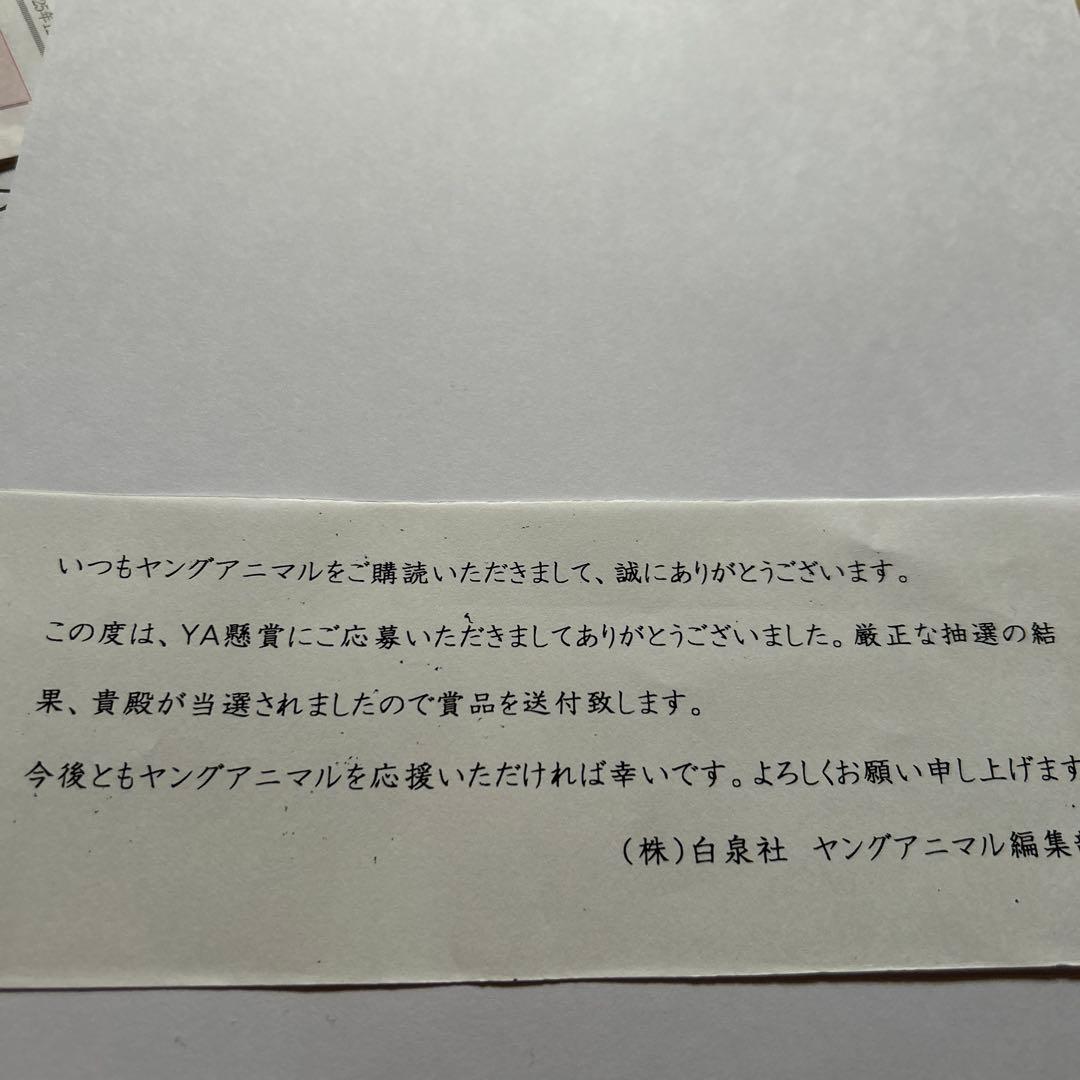 25年
いつもヤングアニマルをご購読いただきまして、誠にありがとうございます。
この度は、YA懸賞にご応募いただきましてありがとうございました。厳正な抽選の結
果、貴殿が当選されましたので賞品を送付致します。
今後ともヤングアニマルを応援いただければ幸いです。よろしくお願い申し上げます
(株)白泉社 ヤングアニマル編集